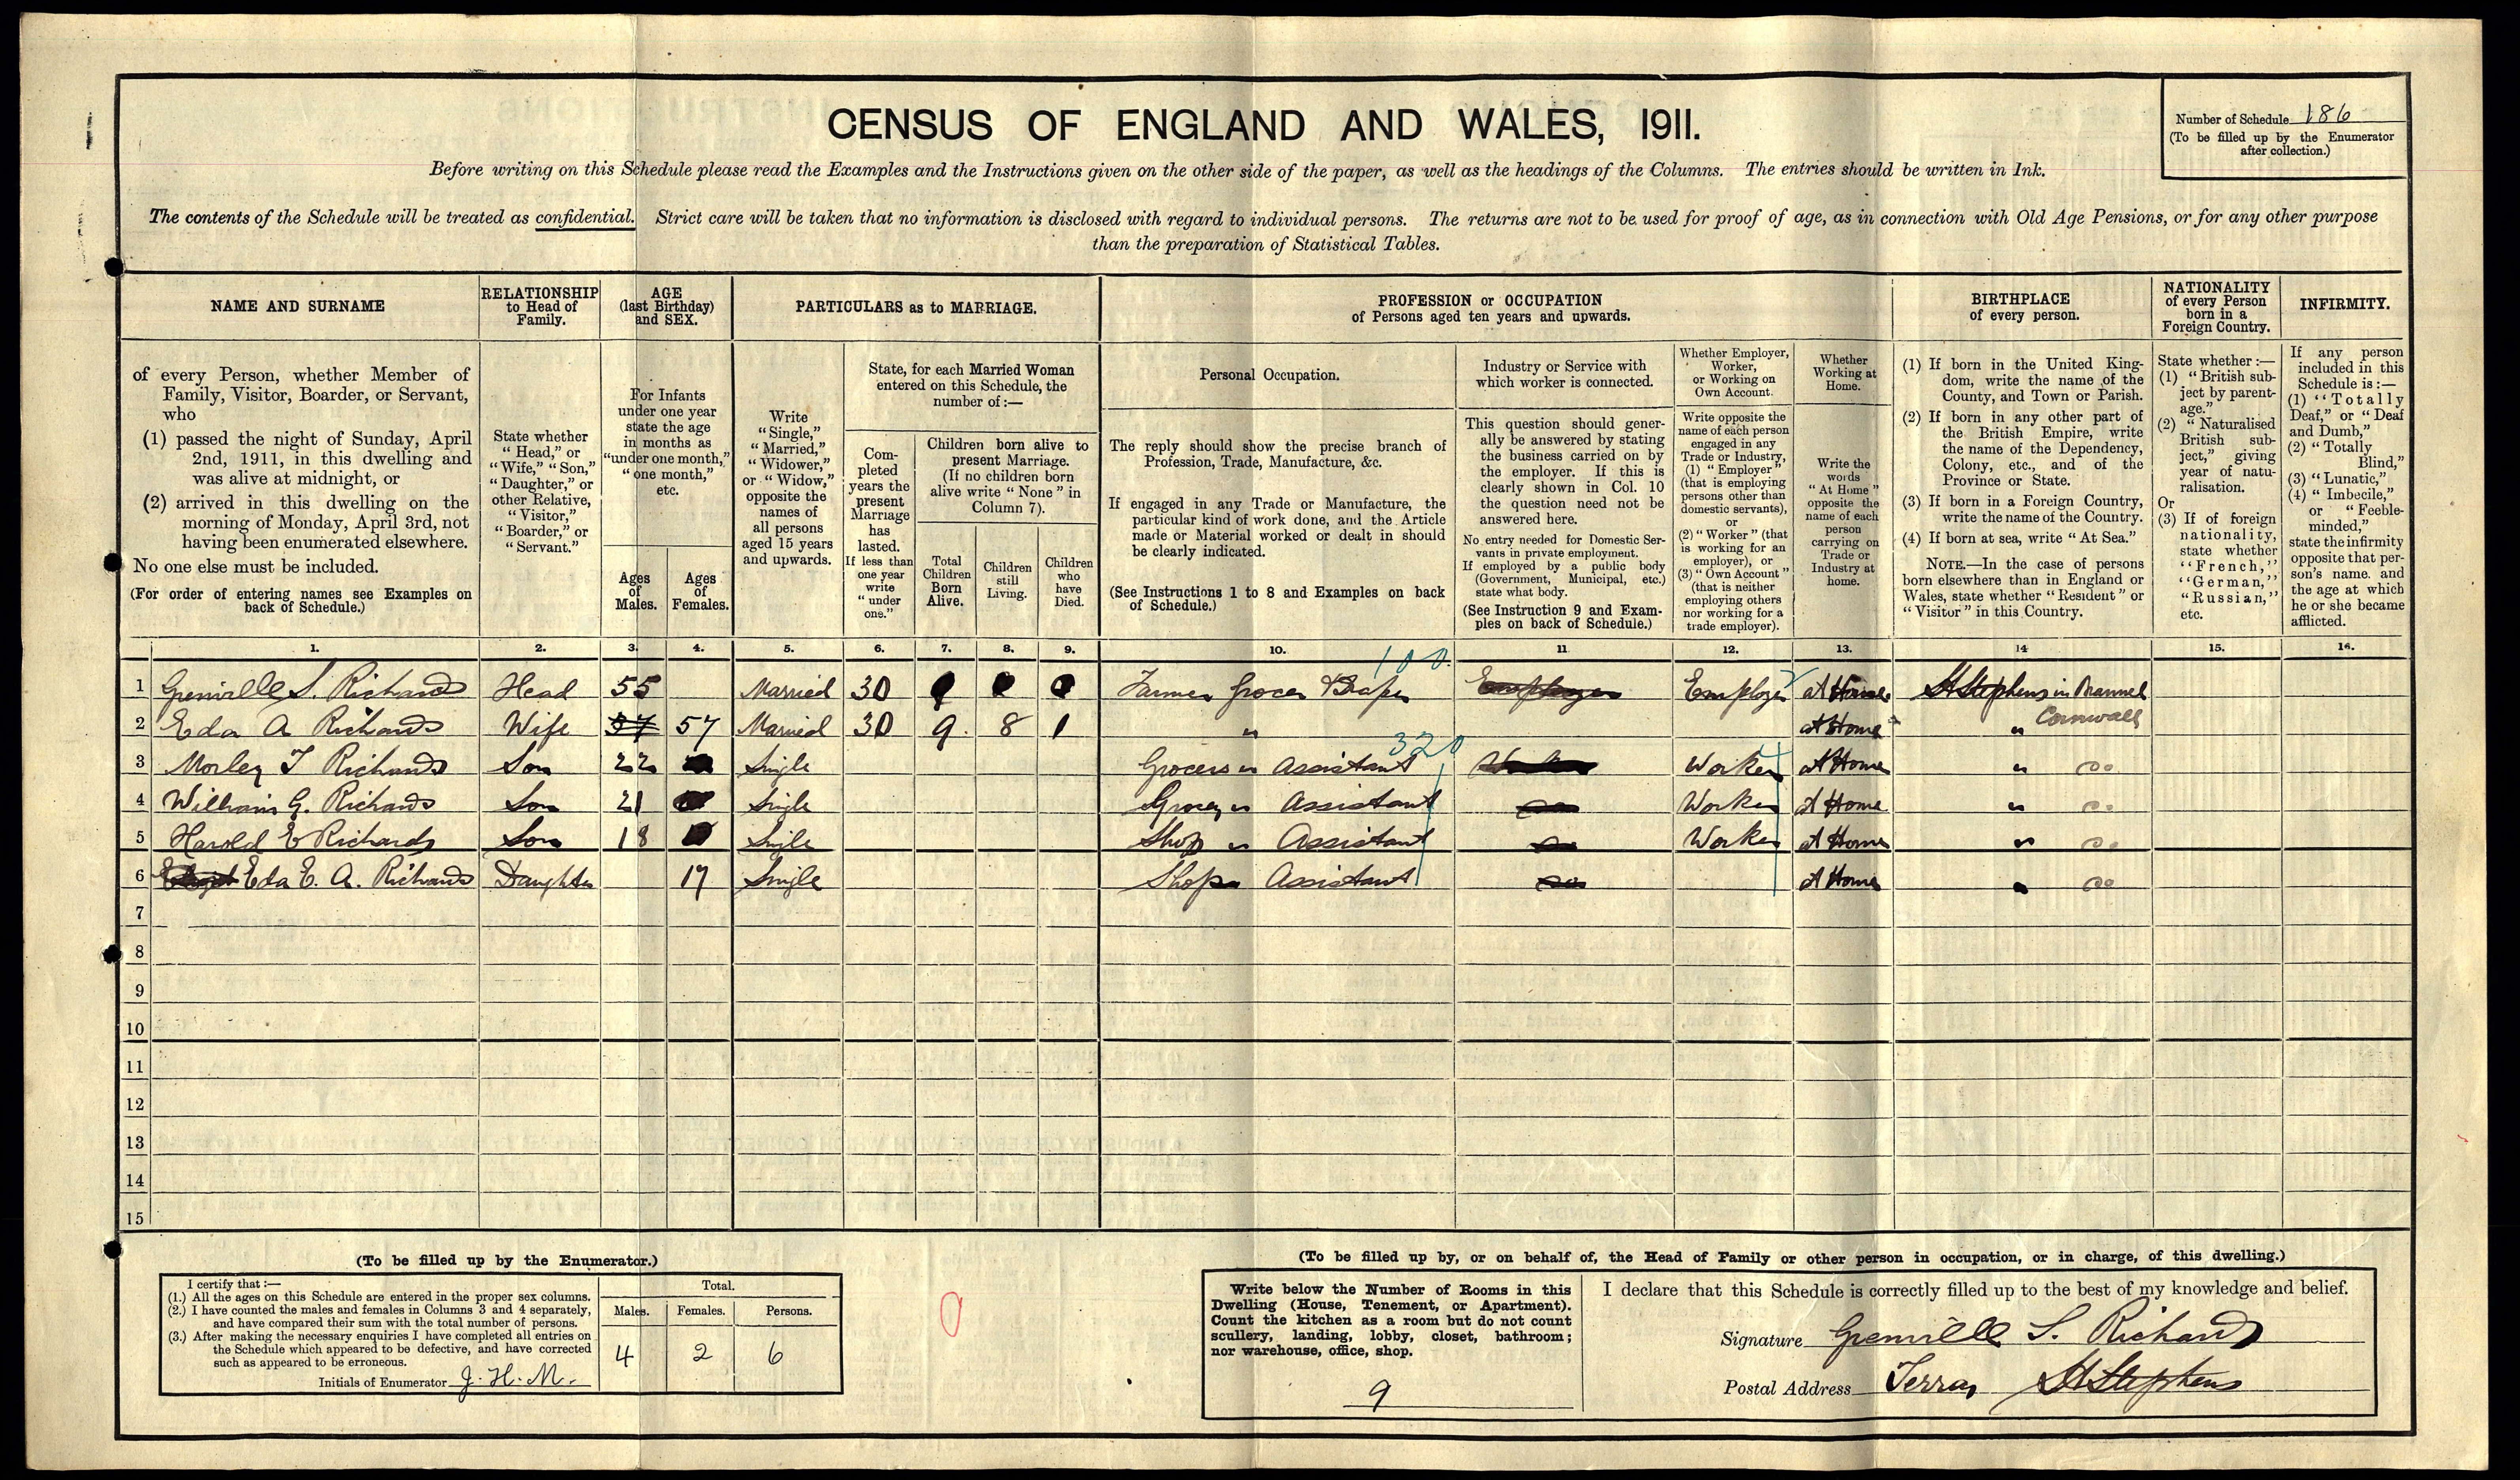 CENSUS OF ENGLAND AND WALES, 1911.
Number of Schedule 186
(To be filled up by the Enumerator
after collection.)
Before writing on this Schedule please read the Examples and the Instructions given on the other side of the paper, as well as the headings of the Columns. The entries should be written in Ink.
The contents of the Schedule will be treated as confidential. Strict care will be taken that no information is disclosed with regard to individual persons. The returns are not to be used for proof of age, as in connection with Old Age Pensions, or for any other purpose
than the preparation of Statistical Tables.
NAME AND SURNAME
of every Person, whether Member of
Family, Visitor, Boarder, or Servant,
who
(1) passed the night of Sunday, April
2nd, 1911, in this dwelling and
was alive at midnight, or
(2) arrived in this dwelling on the
morning of Monday, April 3rd, not
having been enumerated elsewhere.
No one else must be included.
(For order of entering names see Examples on
back of Schedule.)
RELATIONSHIP
to Head of
Family.
State whether
"Head," or
"Wife," "Son,"
"Daughter," or
other Relative,
"Visitor,"
"Boarder," or
"Servant."
AGE
(last Birthday)
and SEX.
For Infants
under one year
state the age
in months as
"under one month,"
"one month,"
etc.
Ages
of
Males.
Ages
of
Females.
PARTICULARS as to MARRIAGE.
Write
"Single,"
"Married,"
"Widower,"
or "Widow,"
opposite the
names of
all persons
aged 15 years
and upwards.
State, for each Married Woman
entered on this Schedule, the
number of:—
Com-
pleted
years the
present
Marriage
has
lasted.
If less than
one year
write
"under
one."
Children born alive to
present Marriage.
(If no children born
alive write "None" in
Column 7).
Total
Children
Born
Alive.
Children
still
Living.
Children
who
have
Died.
PROFESSION or OCCUPATION
of Persons aged ten years and upwards.
Personal Occupation.
The reply should show the precise branch of
Profession, Trade, Manufacture, &c.
If engaged in any Trade or Manufacture, the
particular kind of work done, and the Article
made or Material worked or dealt in should
be clearly indicated.
(See Instructions 1 to 8 and Examples on back
of Schedule.)
Industry or Service with
which worker is connected.
This question should gener-
ally be answered by stating
the business carried on by
the employer. If this is
clearly shown in Col. 10
the question need not be
answered here.
No entry needed for Domestic Ser-
vants in private employment.
If employed by a public body
(Government, Municipal, etc.)
state what body.
(See Instruction 9 and Exam-
ples on back of Schedule.)
Whether Employer,
Worker,
or Working on
Own Account.
Write opposite the
name of each person
engaged in any
Trade or Industry,
(1) "Employer"
(that is employing
persons other than
domestic servants),
or
(2) "Worker" (that
is working for an
employer), or
(3) "Own Account"
(that is neither
employing others
nor working for a
trade employer).
Whether
Working at
Home.
Write the
words
"At Home"
opposite the
name of each
person
carrying on
Trade or
Industry at
home.
BIRTHPLACE
of every person.
(1) If born in the United King-
dom, write the name of the
County, and Town or Parish.
(2) If born in any other part of
the British Empire, write
the name of the Dependency,
Colony, etc., and of the
Province or State.
(3) If born in a Foreign Country,
write the name of the Country.
(4) If born at sea, write "At Sea."
NOTE.—In the case of persons
born elsewhere than in England or
Wales, state whether "Resident" or
"Visitor" in this Country.
NATIONALITY
of every Person
born in a
Foreign Country.
State whether:—
(1) "British sub-
ject by parent-
age."
(2) "Naturalised
British sub-
ject," giving
year of natu-
ralisation.
Or
(3) If of foreign
nationality,
state whether
"French,"
"German,"
"Russian,"
etc.
INFIRMITY.
If any person
included in this
Schedule is:—
(1) "Totally
Deaf," or "Deaf
and Dumb,"
(2) "Totally
Blind,"
(3) "Lunatic,"
(4) "Imbecile,"
or "Feeble-
minded,"
state the infirmity
opposite that per-
son's name, and
the age at which
he or she became
afflicted.
1. 2. 3. 4. 5. 6. 7. 8. 9. 10. 11 12. 13. 14 15. 16.
100
1 Grenville S. Richards Head 55 Married 30 Farmer Grocer & Draper Employer at Home St Stephens in Brannel
Cornwall
2 Eda A Richards Wife 37 57 Married 30 9. 8 1 " at Home "
320
3 Morley T Richards Son 22 Single Grocers " Assistant Worker at Home " Do
4 William G. Richards Son 21 Single Grocery " Assistant Worker at Home " Do
5 Harold E Richards Son 18 Single Shop " Assistant Worker at Home " Do
6 Eda E. A. Richards Daughter 17 Single Shop " Assistant at Home " Do
7
8
9
10
11
12
13
14
15
(To be filled up by the Enumerator.)
I certify that:—
(1.) All the ages on this Schedule are entered in the proper sex columns.
(2.) I have counted the males and females in Columns 3 and 4 separately,
and have compared their sum with the total number of persons.
(3.) After making the necessary enquiries I have completed all entries on
the Schedule which appeared to be defective, and have corrected
such as appeared to be erroneous.
Initials of Enumerator J. H. M.
Total.
Males. Females. Persons.
4 2 6
0
(To be filled up by, or on behalf of, the Head of Family or other person in occupation, or in charge, of this dwelling.)
Write below the Number of Rooms in this
Dwelling (House, Tenement, or Apartment).
Count the kitchen as a room but do not count
scullery, landing, lobby, closet, bathroom;
nor warehouse, office, shop.
9
I declare that this Schedule is correctly filled up to the best of my knowledge and belief.
Signature Grenville S. Richards
Postal Address Terras St Stephens